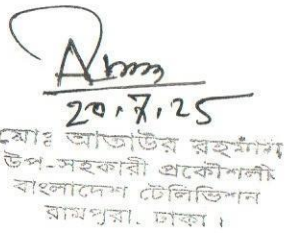 20.7.25
মোঃ আতাউর রহমান
উপ-সহকারী প্রকৌশলী
বাংলাদেশ টেলিভিশন
রামপুরা, ঢাকা।